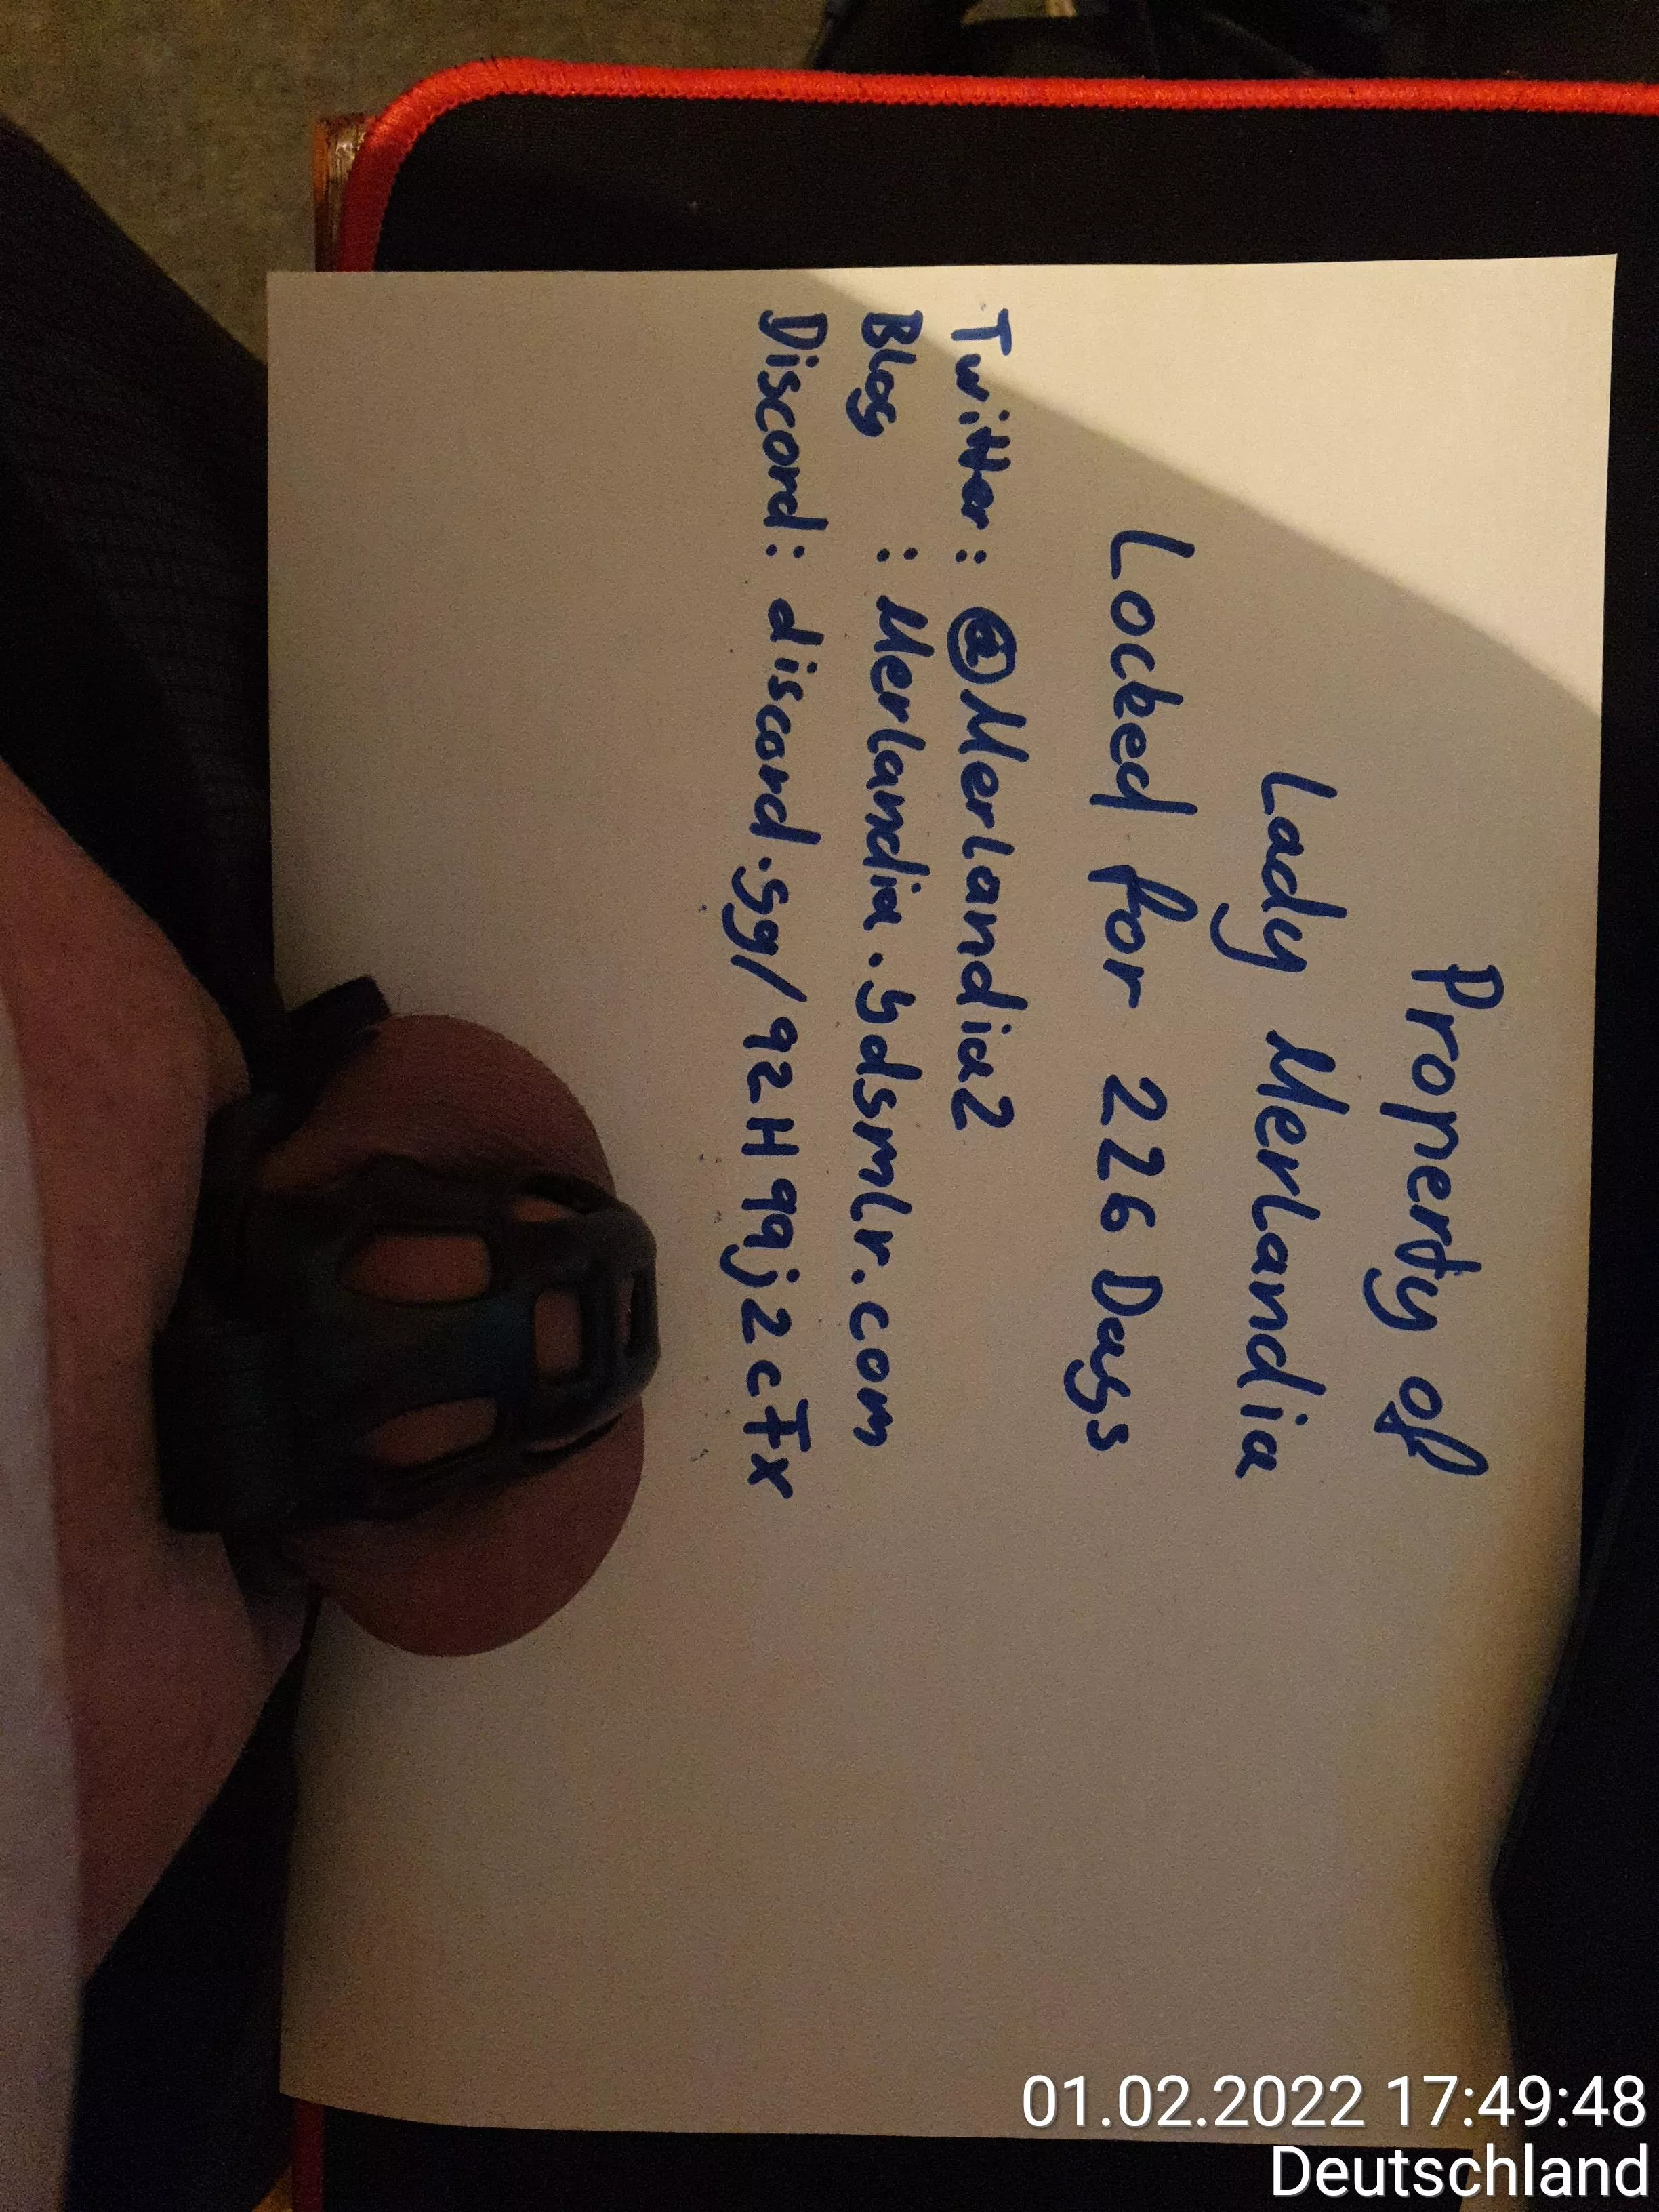 Property of
Lady Merlandia
Locked for 226 Days
Twitter: @Merlandia2
Blog : Merlandia.bdsmlr.com
Discord: discord.gg/92H99j2cFx
01.02.2022 17:49:48
Deutschland